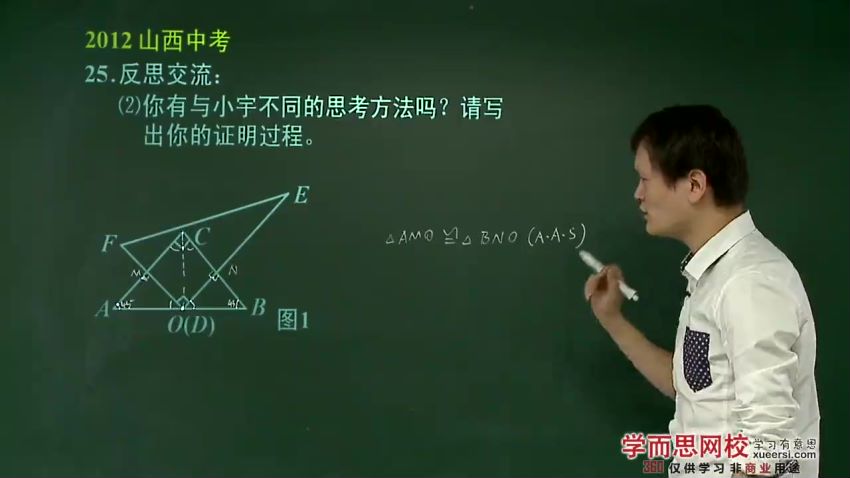 2012 山西中考
25.反思交流：
⑵你有与小宇不同的思考方法吗？请写
出你的证明过程。
E
F
C
M
N
A
45°
45°
B
O(D)
图1
△AMO ≌ △BNO (A.A.S)
学而思网校
学习有意思
xueersi.com
360 仅供学习 非商业用途